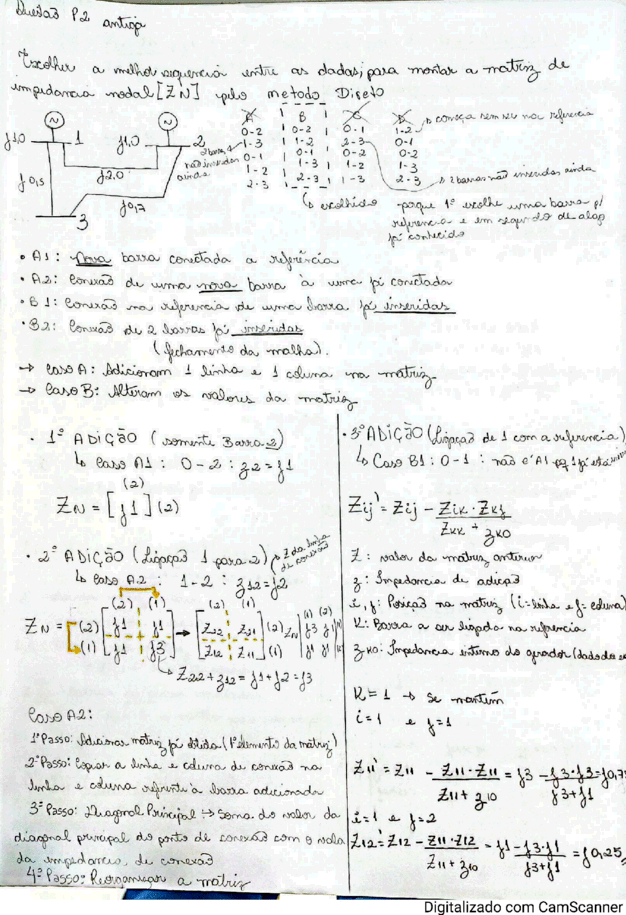 Questão P2 antiga
Escolher a melhor sequencia entre as dadas, para montar a matriz de
impedancia nodal [ZN] pelo metodo Direto
A B C D
0-2 0-2 0-1 1-2
1-3 1-2 2-3 0-1
0-1 0-1 0-2 0-2
1-2 1-3 1-2 1-3
2-3 2-3 1-3 2-3
2 barras não inseridas ainda
começa sem ser na referencia
2 barras não inseridas ainda
escolhido porque 1º escolhe uma barra p/
referencia e em seguida de algo
já conhecido
~ ~
j1,0 1 j1,0 2
j2.0
j0,5
j0,7
3
• A1: Nova barra conectada a referência
• A2: Conexão de uma nova barra à uma já conectada
• B1: Conexão na referencia de uma barra já inseridas
• B2: Conexão de 2 barras já inseridas
(fechamento da malha).
→ Caso A: Adicionam 1 linha e 1 coluna na matriz
→ Caso B: Alteram os valores da matriz
• 1ª ADIÇÃO (somente Barra 2)
↳ Caso A1: 0-2: z2=j1
(2)
ZN = [j1](2)
• 2ª ADIÇÃO (Ligação 1 para 2)
Z da linha de conexão
↳ Caso A2: 1-2: z12=j2
(2) (1) (2) (1) (1) (2)
ZN = (2) [j1 j1] → [Z22 Z21] (2) ZN [j3 j1]
(1) [j1 j3] [Z12 Z11] (1) [j1 j1]
↳ Z22+z12=j1+j2=j3
Caso A2:
1º Passo: Adicionar matriz já obtida (1º elemento da matriz)
2º Passo: Copiar a linha e coluna de conexão na
linha e coluna referente à barra adicionada
3º Passo: Diagonal Principal → Soma do valor da
diagonal principal do ponto de conexão com o valor
da impedancia de conexão
4º Passo: Reorganizar a matriz
• 3ª ADIÇÃO (Ligação de 1 com a referencia)
↳ Caso B1: 0-1: não é A1 pq 1 já está
Zij' = Zij - Zik . Zkj / Zkk + zko
Z: valor da matriz anterior
z: Impedancia de adição
i, j: Posição na matriz (i=linha e j=coluna)
K: Barra a ser ligada na referencia
zko: Impedancia interna do gerador (dado da
K=1 → Se mantém
i=1 e j=1
Z11' = Z11 - Z11 . Z11 / Z11 + z10 = j3 - j3.j3 / j3+j1 = j0,75
i=1 e j=2
Z12' = Z12 - Z11 . Z12 / Z11 + z10 = j1 - j3.j1 / j3+j1 = j0,25
Digitalizado com CamScanner